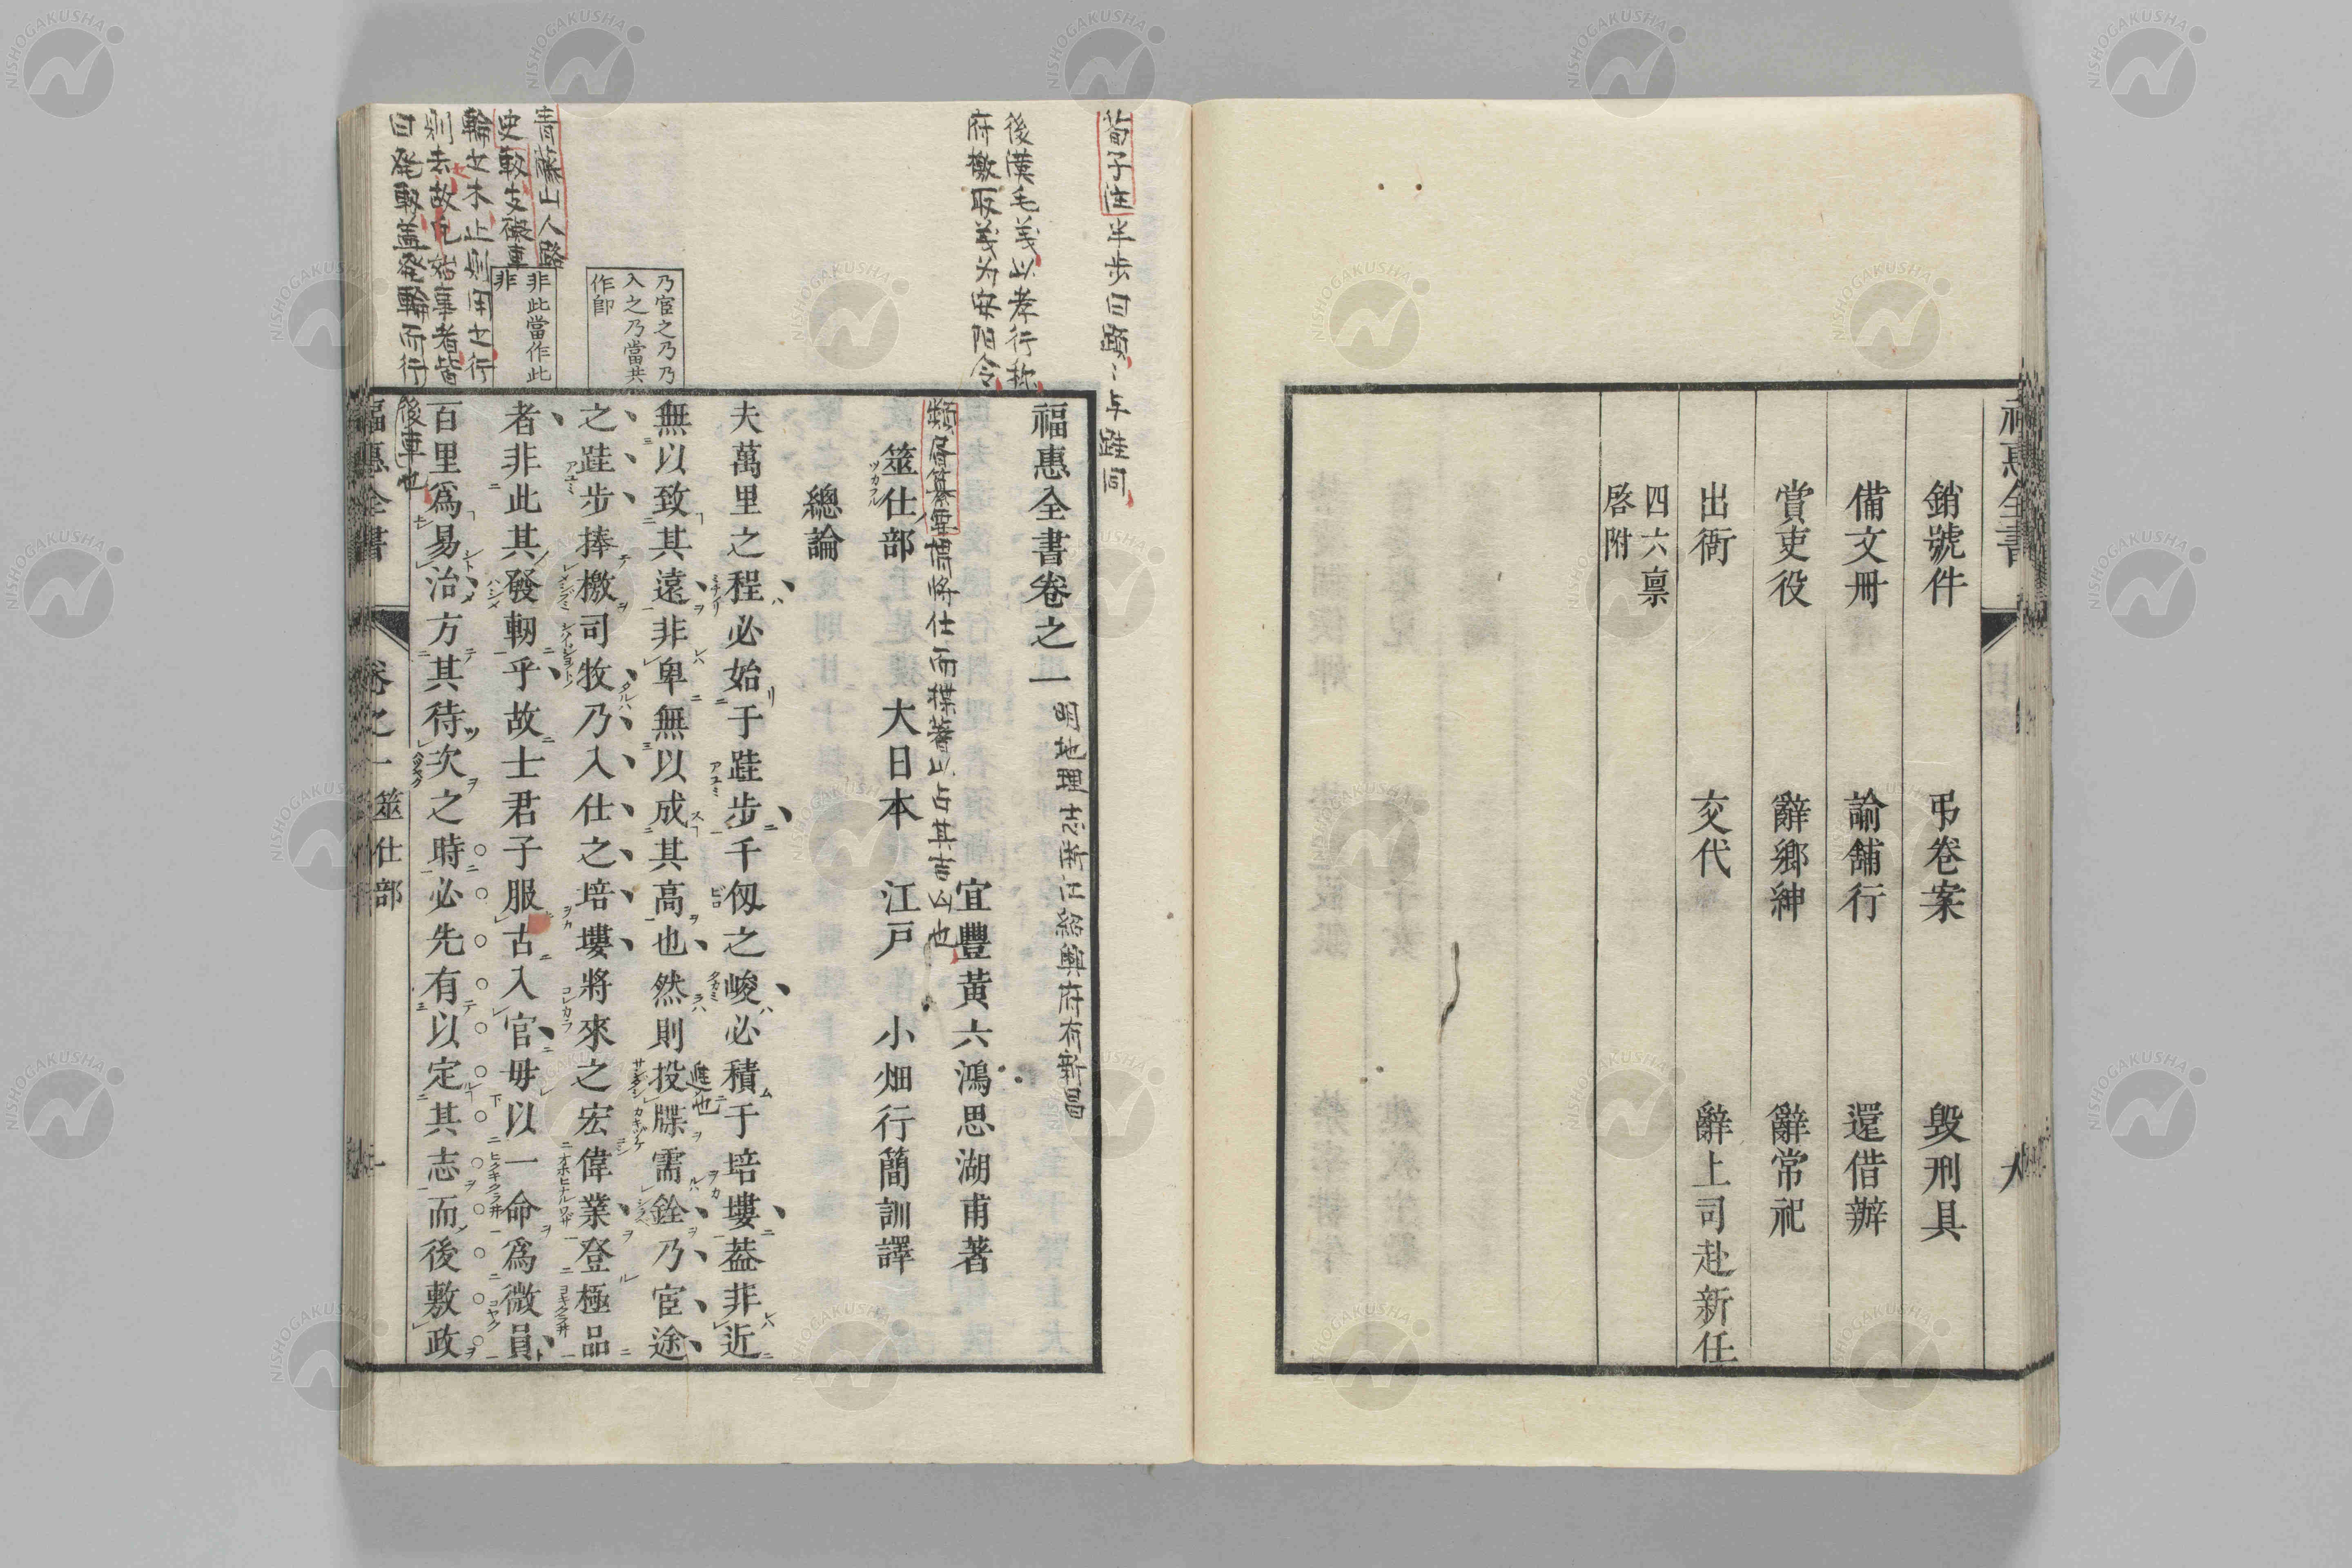 福惠全書
八
銷號件　弔卷案　毀刑具
備文冊　諭舖行　還借辦
賞吏役　辭鄉紳　辭常祀
出衙　交代　辭上司赴新任
四六禀
啓附
荀子注半步曰蹞〻与跬同
後漢毛義以孝行称
府檄取義为安阳令
乃宦之乃乃
入之乃當共
作卽
非此當作此
非
青藤山人路
史軔支礙車
輪之木止則用之行
則去故凡始事者皆
曰発軔蓋発輪而行
後車也
福惠全書卷之一
明地理志浙江紹興府有新昌
宜豐黃六鴻思湖甫著
將仕而揲蓍以占其吉凶也
筮仕部　大日本　江戸　小畑行簡訓譯
總論
夫萬里之程必始于跬步千仭之峻必積于培塿葢非近
無以致其遠非卑無以成其高也然則投牒需銓乃宦途
進也
之跬步捧檄司牧乃入仕之培塿將來之宏偉業登極品
者非此其發軔乎故士君子服古入官毋以一命爲微員
百里爲易治方其待次之時必先有以定其志而後敷政
福惠全書　卷之一　筮仕部　一
NISHOGAKUSHA